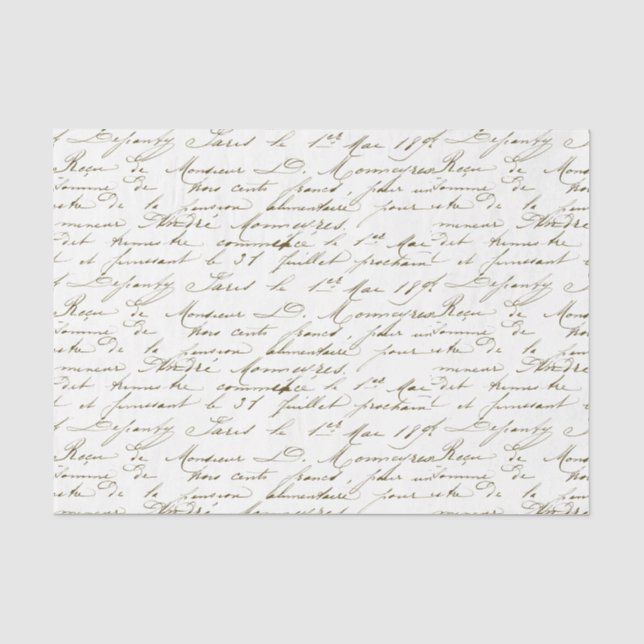 Depanty Paris le 1er Mai 189 Depanty
Reçu de Monsieur D. Monneyres Reçu de Mons
Somme de trois cents francs, pour un Somme de trois
estre de la pension alimentaire pour estre de la pens
mineur André Monneyres. mineur André
dit trimestre commence le 1er Mai dit trimestre
et finissant le 31 Juillet prochain et finissant
Depanty Paris le 1er Mai 189 Depanty
Reçu de Monsieur D. Monneyres Reçu de Mons
Somme de trois cents francs, pour un Somme de trois
estre de la pension alimentaire pour estre de la pens
mineur André Monneyres. mineur André
dit trimestre commence le 1er Mai dit trimestre
et finissant le 31 Juillet prochain et finissant
Depanty Paris le 1er Mai 189 Depanty
Reçu de Monsieur D. Monneyres Reçu de Mons
Somme de trois cents francs, pour un Somme de trois
estre de la pension alimentaire pour estre de la pens
mineur André Monneyres. mineur André